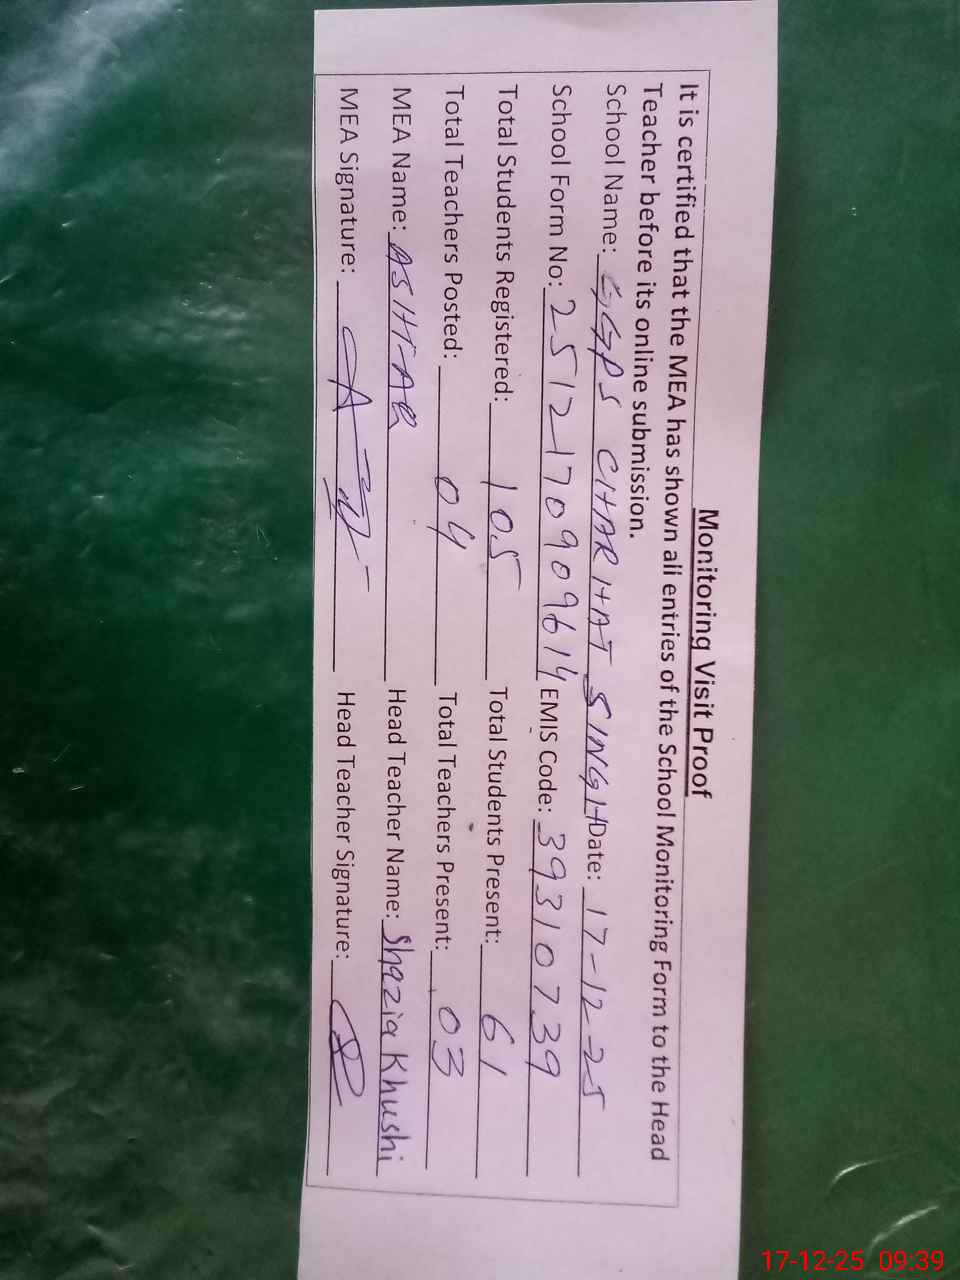 Monitoring Visit Proof
It is certified that the MEA has shown all entries of the School Monitoring Form to the Head
Teacher before its online submission.
School Name: GGPS CHAR HAT SINGH Date: 17-12-25
School Form No: 2512170909614 EMIS Code: 39310739
Total Students Registered: 105 Total Students Present: 61
Total Teachers Posted: 04 Total Teachers Present: 03
MEA Name: ASHAR Head Teacher Name: Shazia Khushi
MEA Signature: Head Teacher Signature:
17-12-25 09:39